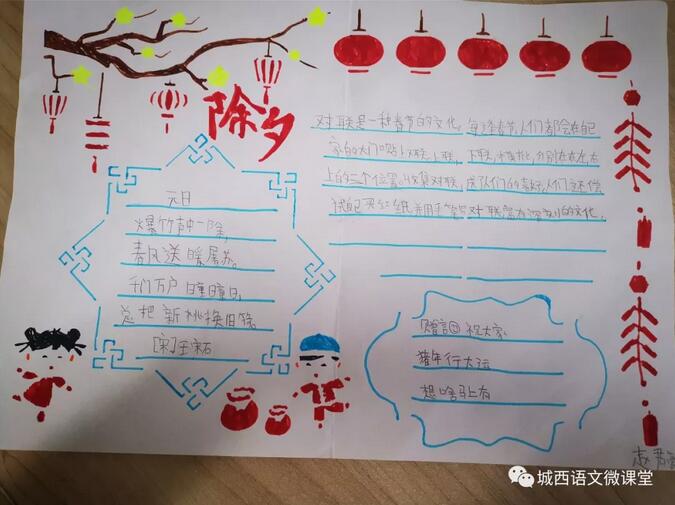 除夕
元日
爆竹声中一除,
春风送暖屠苏。
千门万户瞳瞳日,
总把新桃换旧符。
[宋]王
对联是一种春节的文化。每逢春节,人们都会在自己
家的大门贴上对联,上联、下联、横批,分别在右左
上的三个位置。收集对联,成了人们的喜好,人们还
试把买红纸并用毛笔写对联富有深刻的文化。
祝大家:
猪年行大运
想啥马上有
赵
城西语文微课堂